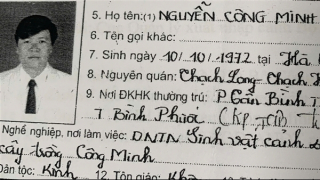 5. Họ tên:(1) NGUYỄN CÔNG MINH
6. Tên gọi khác:
7. Sinh ngày 10/10/1972 tại Hà
8. Nguyên quán: Thạch Long - Thạch H
9. Nơi ĐKHK thường trú: P Tân Bình T
T Bình Phước
Nghề nghiệp, nơi làm việc: DNTN Sinh vật cảnh
cây trồng Công Minh
Dân tộc: Kinh 12. Tôn giáo: Khô